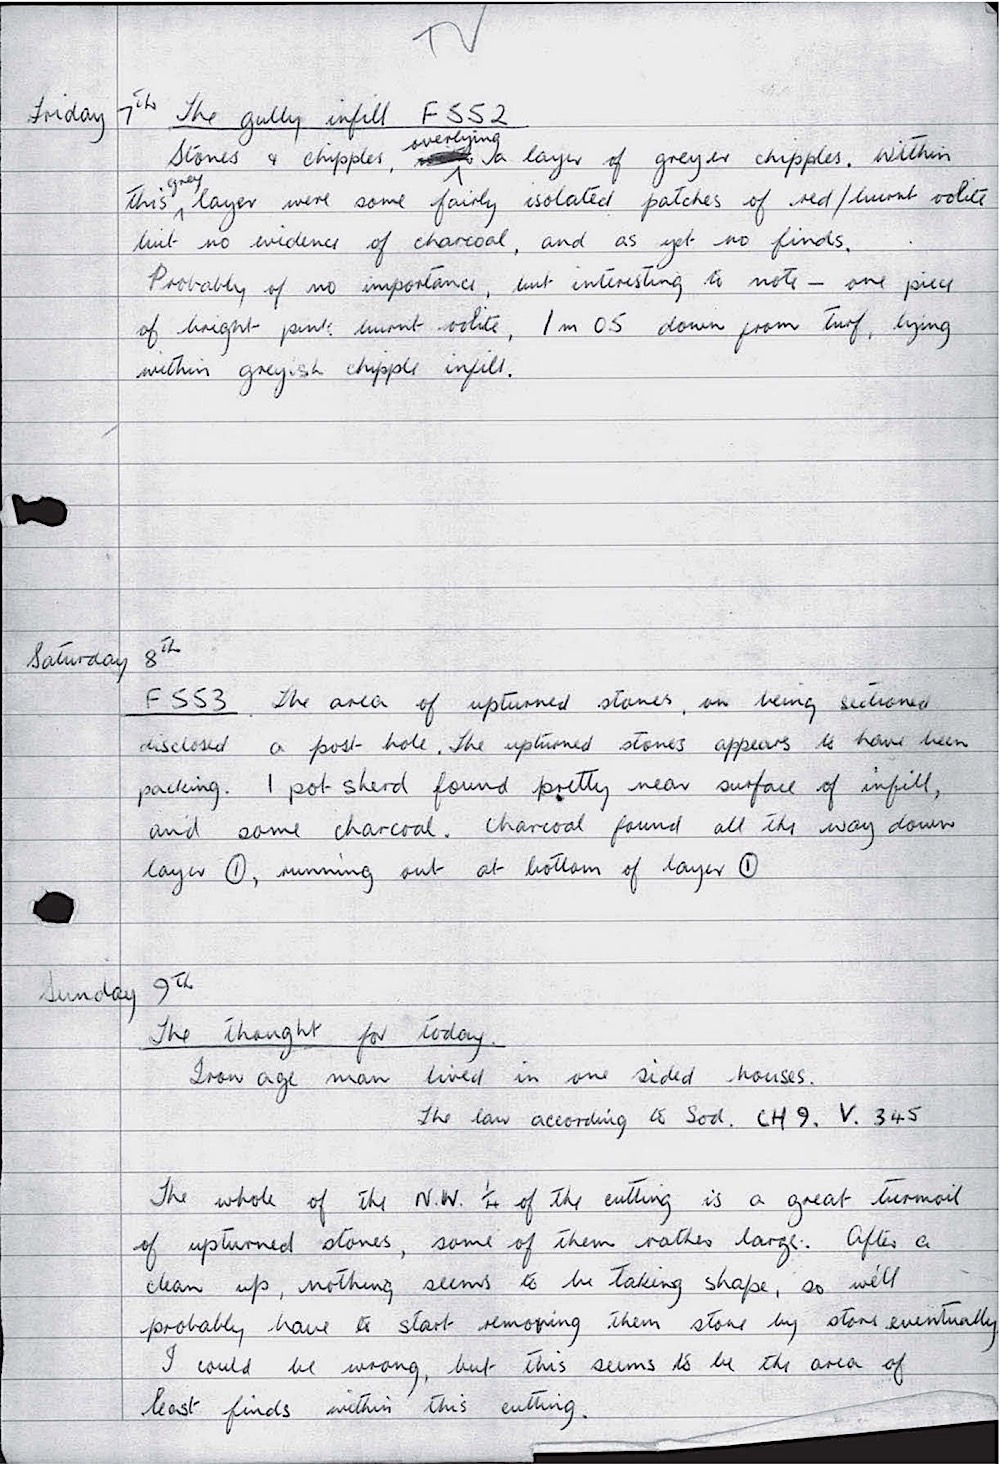 TV
Friday 7th The gully infill F552
Stones & chipples, overlying a layer of greyer chipples. Within
this grey layer were some fairly isolated patches of red/burnt oolite
but no evidence of charcoal, and as yet no finds.
Probably of no importance, but interesting to note - one piece
of bright pink burnt oolite, 1m 05 down from turf, lying
within greyish chipple infill.
Saturday 8th
F553 The area of upturned stones, on being sectioned
disclosed a post hole. The upturned stones appears to have been
packing. 1 pot sherd found pretty near surface of infill,
and some charcoal. Charcoal found all the way down
layer ①, running out at bottom of layer ①
Sunday 9th
The thought for today.
Iron age man lived in one sided houses.
The law according to Sod. CH 9. V. 345
The whole of the N.W. 1/4 of the cutting is a great turmoil
of upturned stones, some of them rather large. After a
clean up, nothing seems to be taking shape, so we'll
probably have to start removing them stone by stone eventually
I could be wrong, but this seems to be the area of
least finds within this cutting.